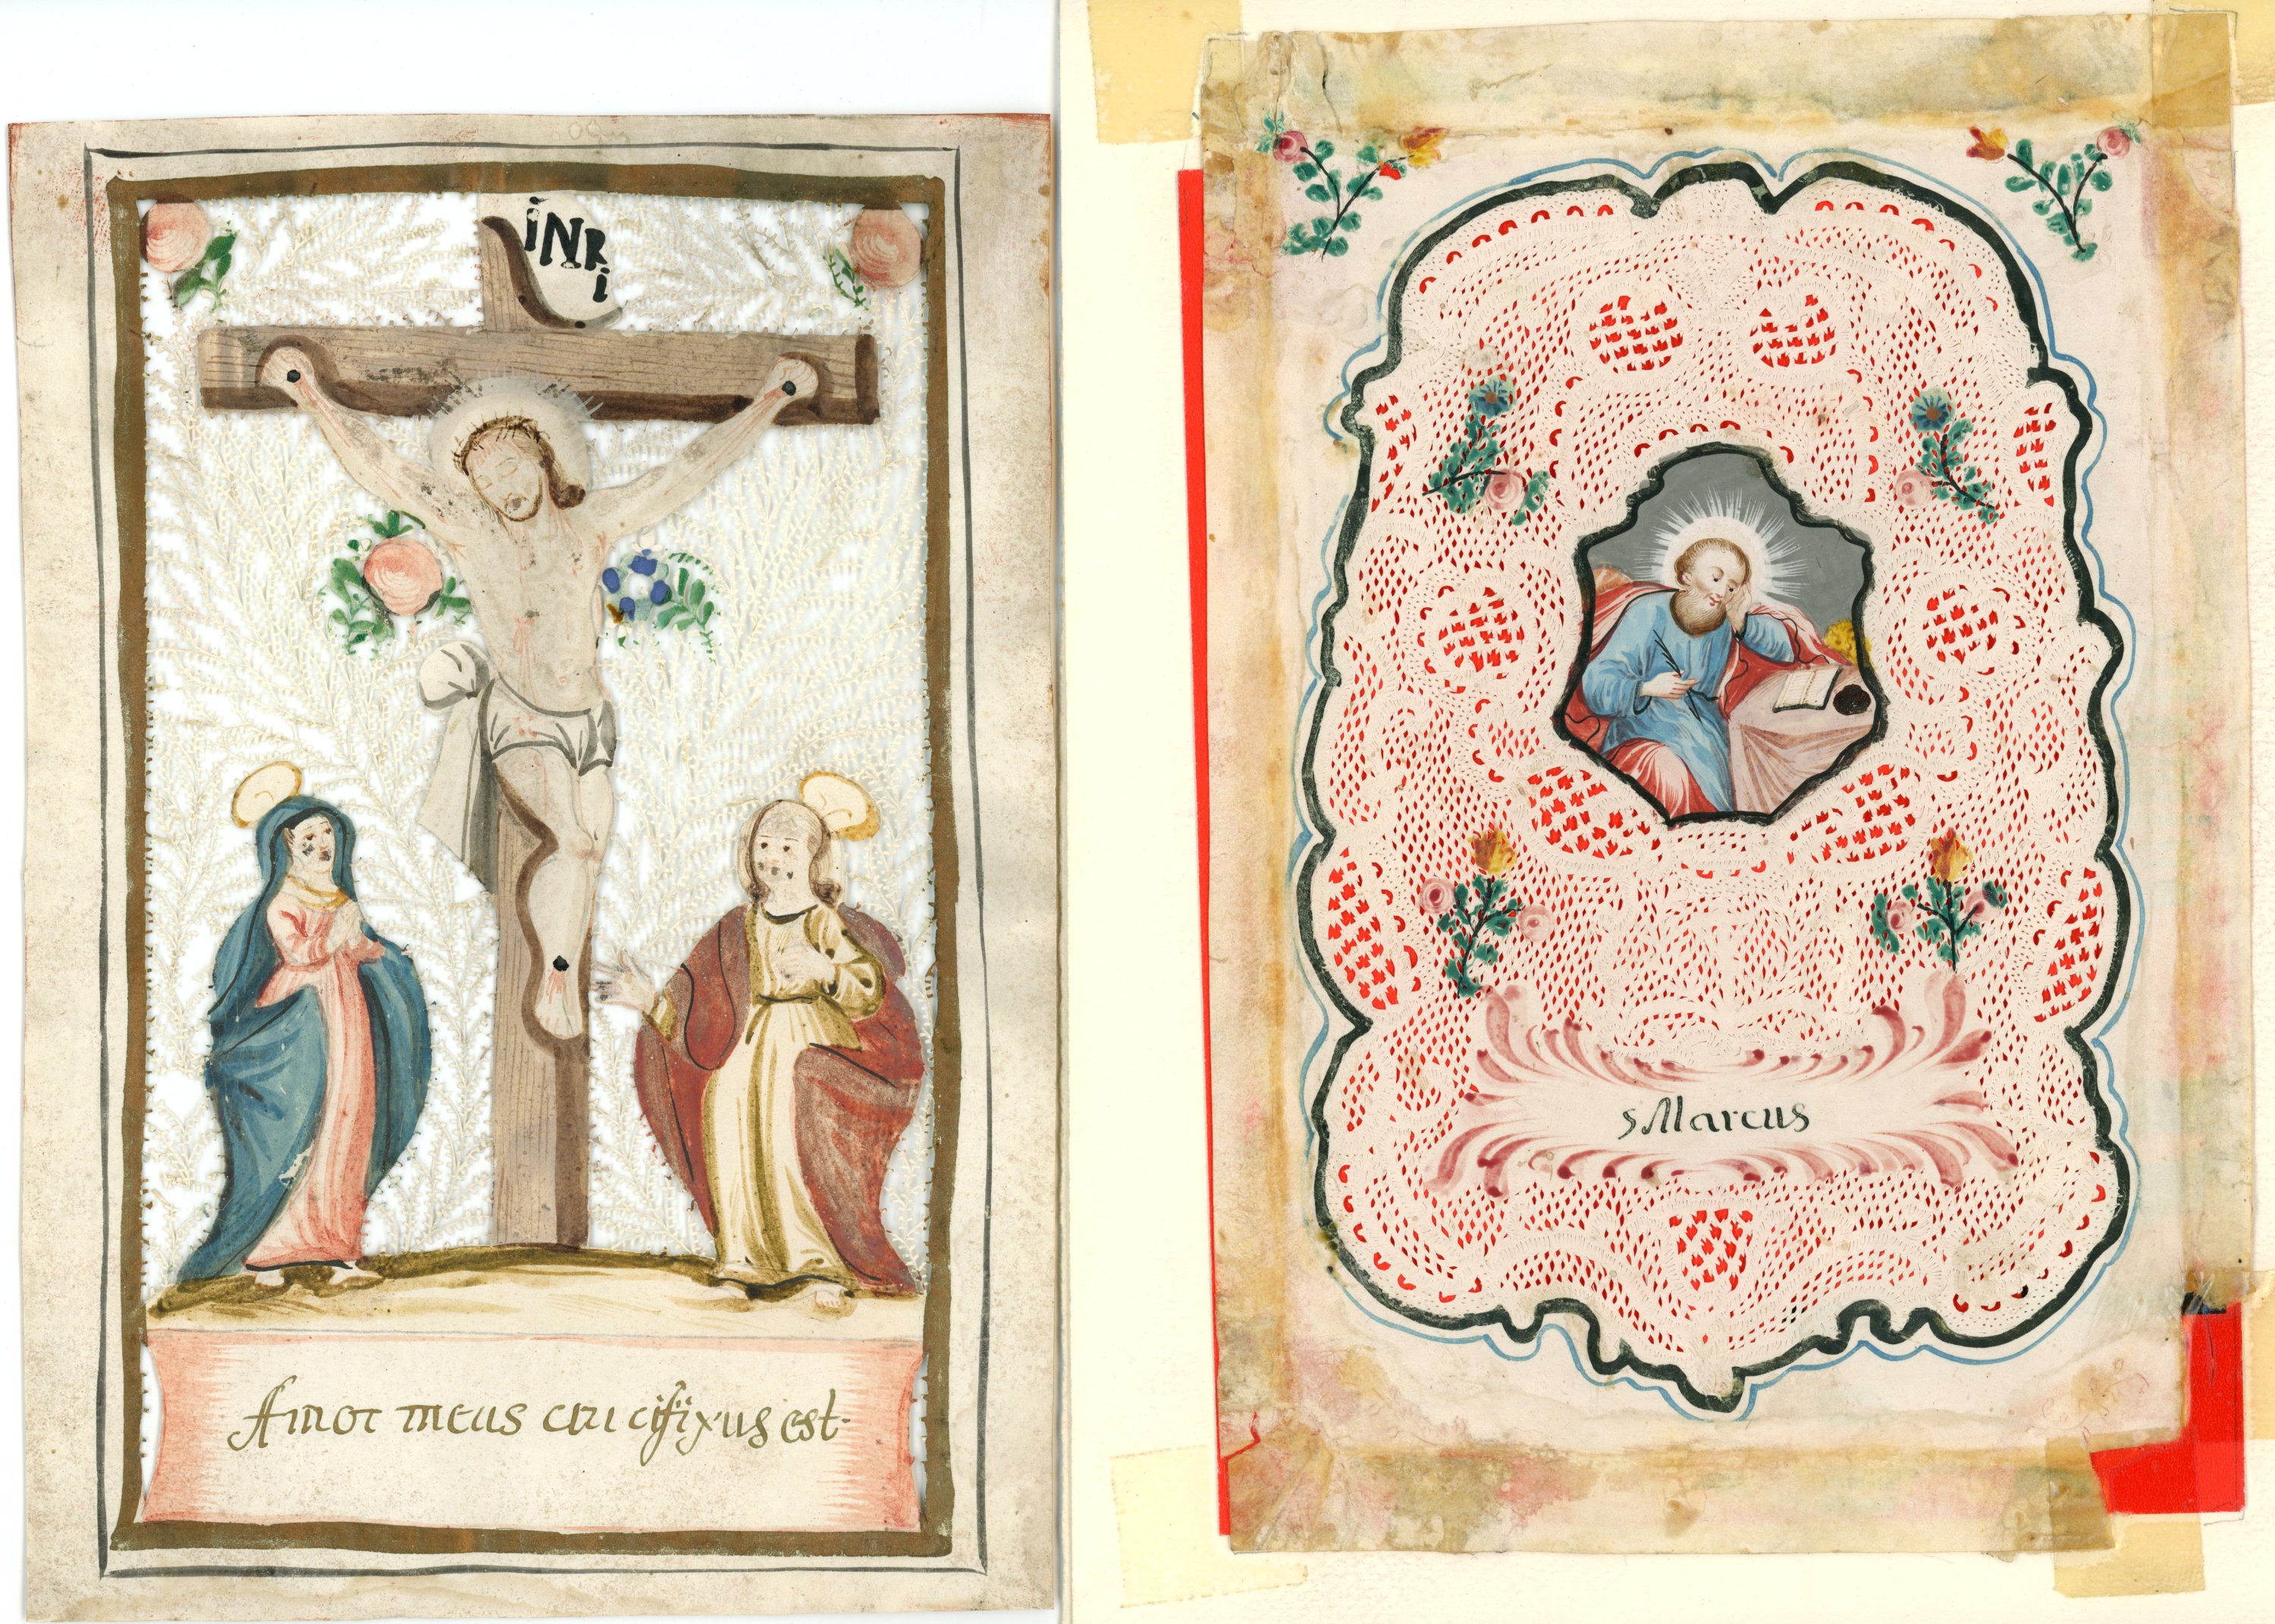 iNR
i
Amor meus crucifixus est.
sMarcus